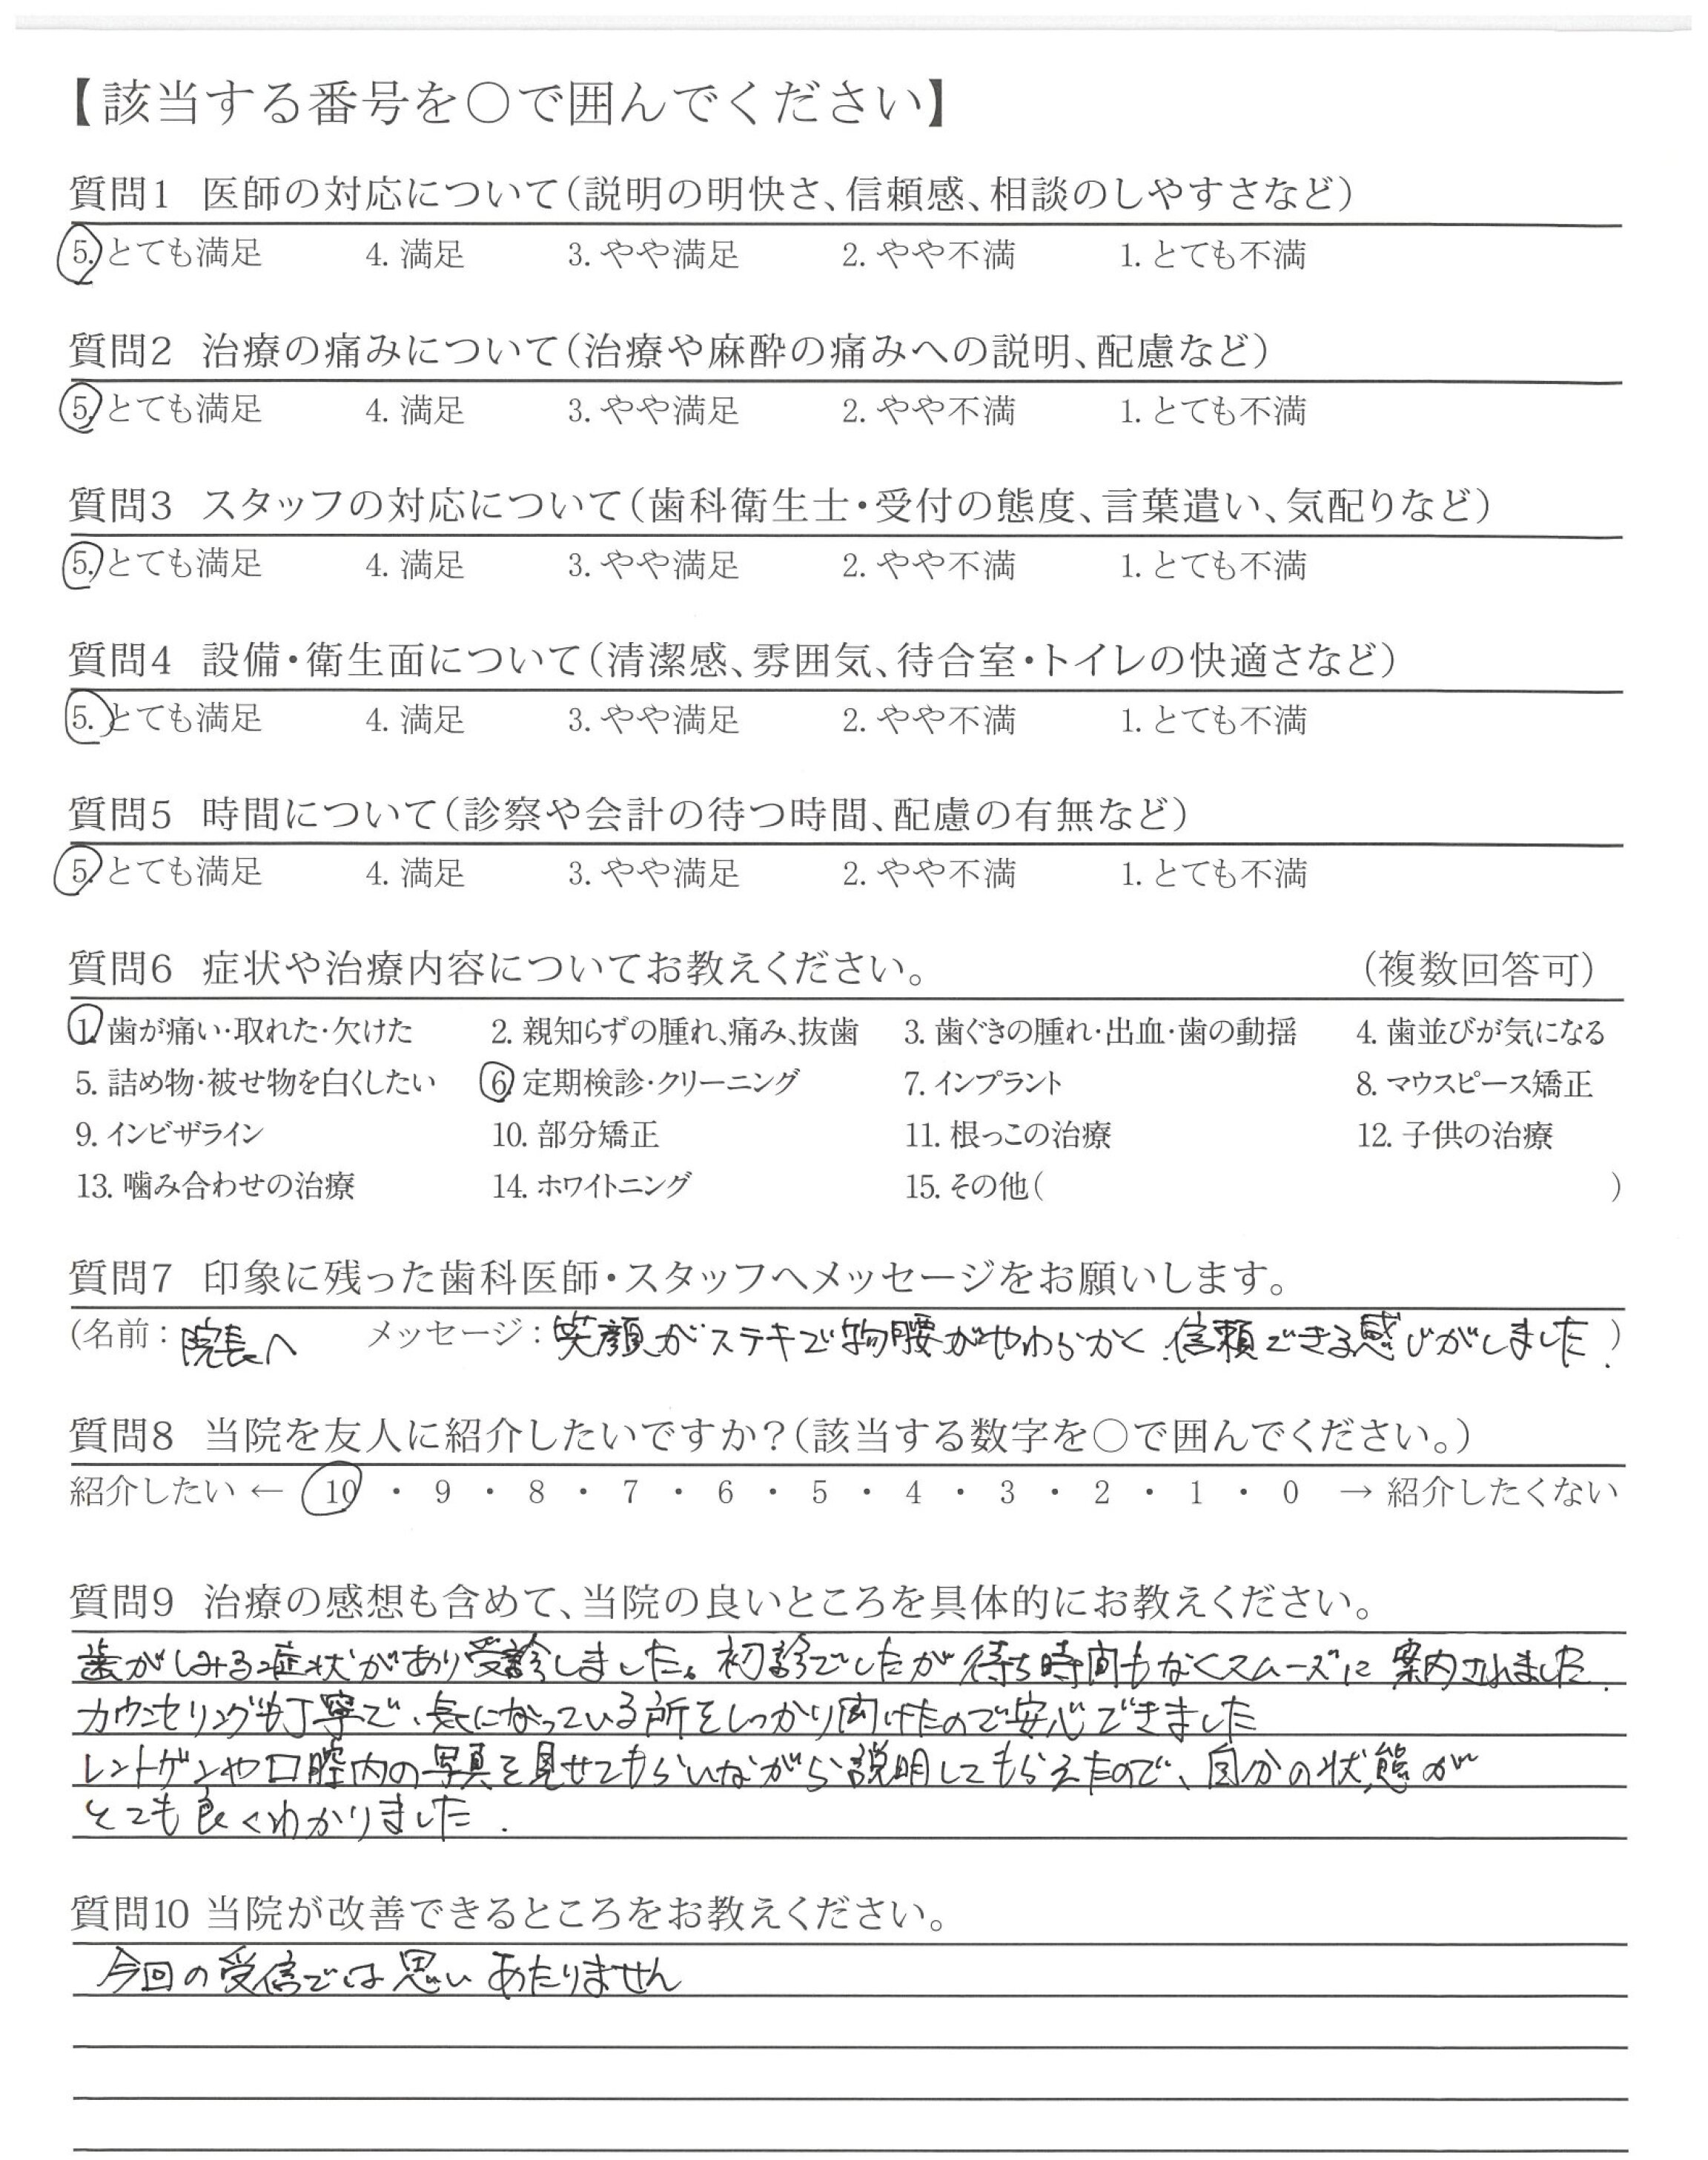 【該当する番号を○で囲んでください】
質問1 医師の対応について(説明の明快さ、信頼感、相談のしやすさなど)
5. とても満足 4. 満足 3. やや満足 2. やや不満 1. とても不満
質問2 治療の痛みについて(治療や麻酔の痛みへの説明、配慮など)
5. とても満足 4. 満足 3. やや満足 2. やや不満 1. とても不満
質問3 スタッフの対応について(歯科衛生士・受付の態度、言葉遣い、気配りなど)
5. とても満足 4. 満足 3. やや満足 2. やや不満 1. とても不満
質問4 設備・衛生面について(清潔感、雰囲気、待合室・トイレの快適さなど)
5. とても満足 4. 満足 3. やや満足 2. やや不満 1. とても不満
質問5 時間について(診察や会計の待つ時間、配慮の有無など)
5. とても満足 4. 満足 3. やや満足 2. やや不満 1. とても不満
質問6 症状や治療内容についてお教えください。 (複数回答可)
1. 歯が痛い・取れた・欠けた 2. 親知らずの腫れ、痛み、抜歯 3. 歯ぐきの腫れ・出血・歯の動揺 4. 歯並びが気になる
5. 詰め物・被せ物を白くしたい 6. 定期検診・クリーニング 7. インプラント 8. マウスピース矯正
9. インビザライン 10. 部分矯正 11. 根っこの治療 12. 子供の治療
13. 噛み合わせの治療 14. ホワイトニング 15. その他( )
質問7 印象に残った歯科医師・スタッフへメッセージをお願いします。
(名前：院長へ メッセージ：笑顔がステキで物腰がやわらかく、信頼できる感じがしました。)
質問8 当院を友人に紹介したいですか？(該当する数字を○で囲んでください。)
紹介したい ← 10 ・ 9 ・ 8 ・ 7 ・ 6 ・ 5 ・ 4 ・ 3 ・ 2 ・ 1 ・ 0 → 紹介したくない
質問9 治療の感想も含めて、当院の良いところを具体的にお教えください。
歯がしみる症状があり受診しました。初診でしたが待ち時間もなくスムーズに案内されました。
カウンセリングも丁寧で、気になっている所をしっかり聞けたので安心できました
レントゲンや口腔内の写真を見せてもらいながら説明してもらえたので、自分の状態が
とても良くわかりました.
質問10 当院が改善できるところをお教えください。
今回の受信では思いあたりません